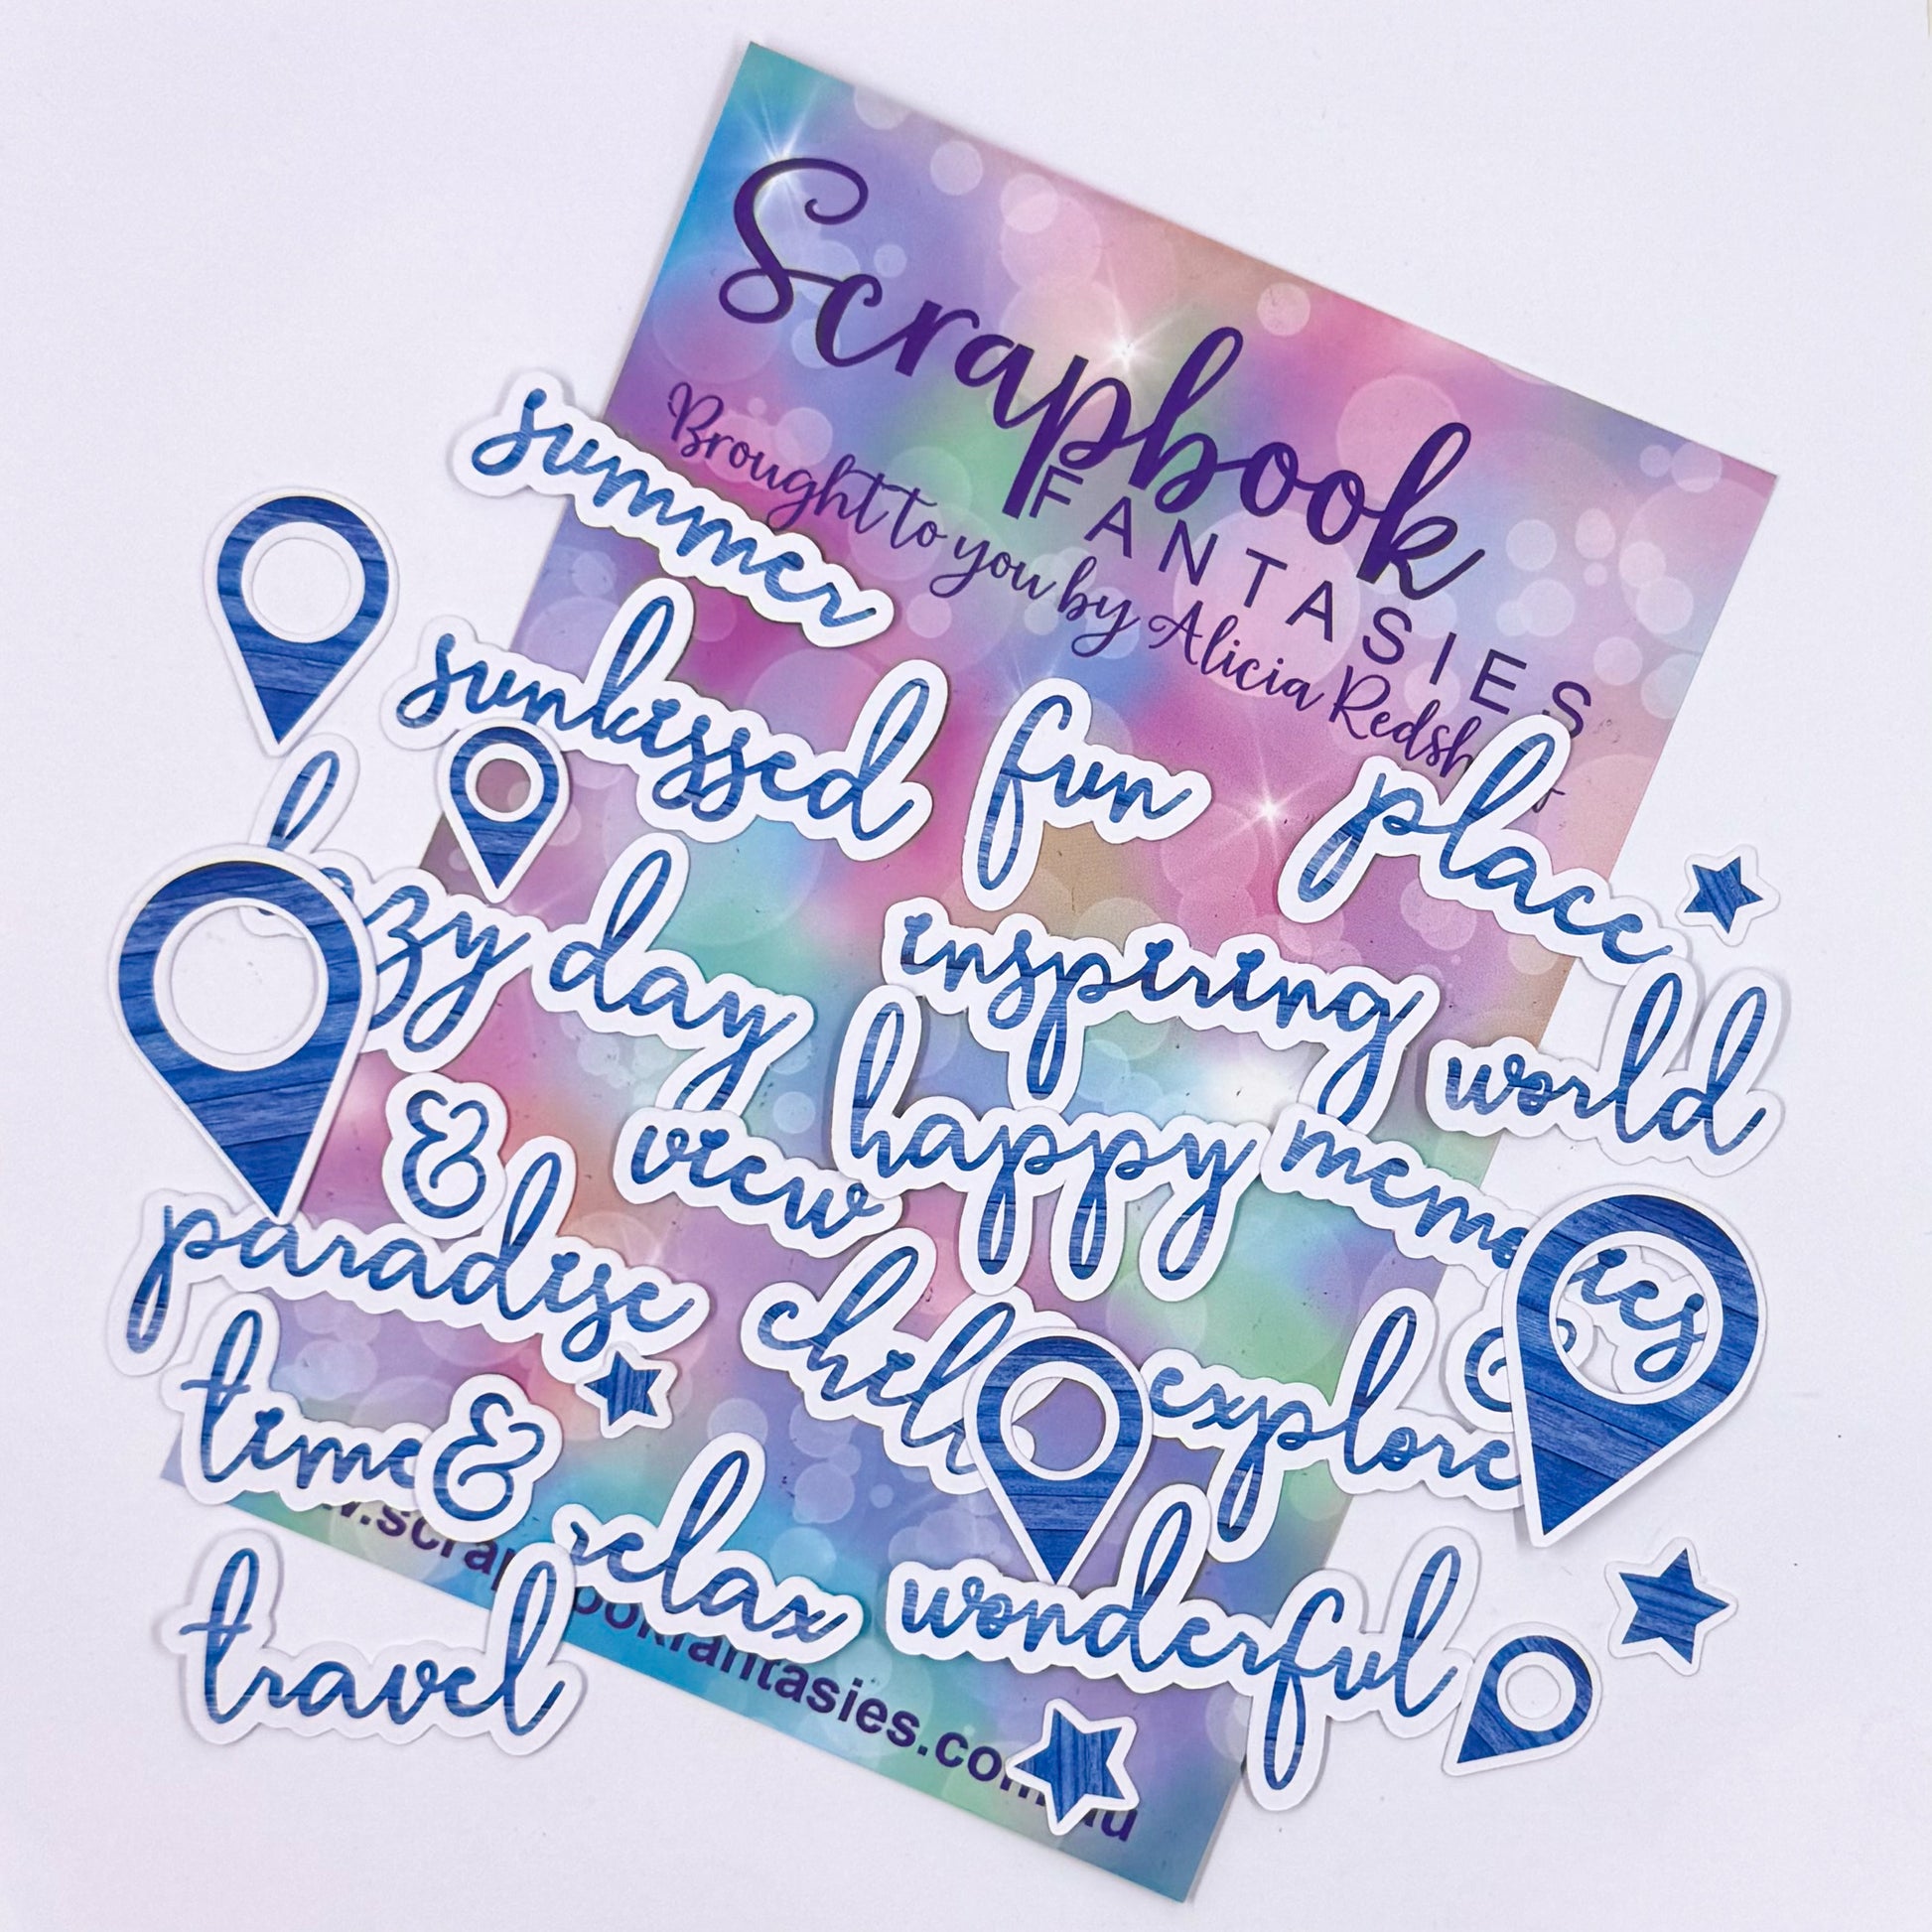 Scrapbook
FANTASIES
Brought to you by Alicia Redsh
summer
sunkissed
fun
place
lazy day
inspiring
world
&
view
happy
memories
paradise
chill
explore
&
time
&
relax
wonderful
travel
w.scrapbookfantasies.com.au